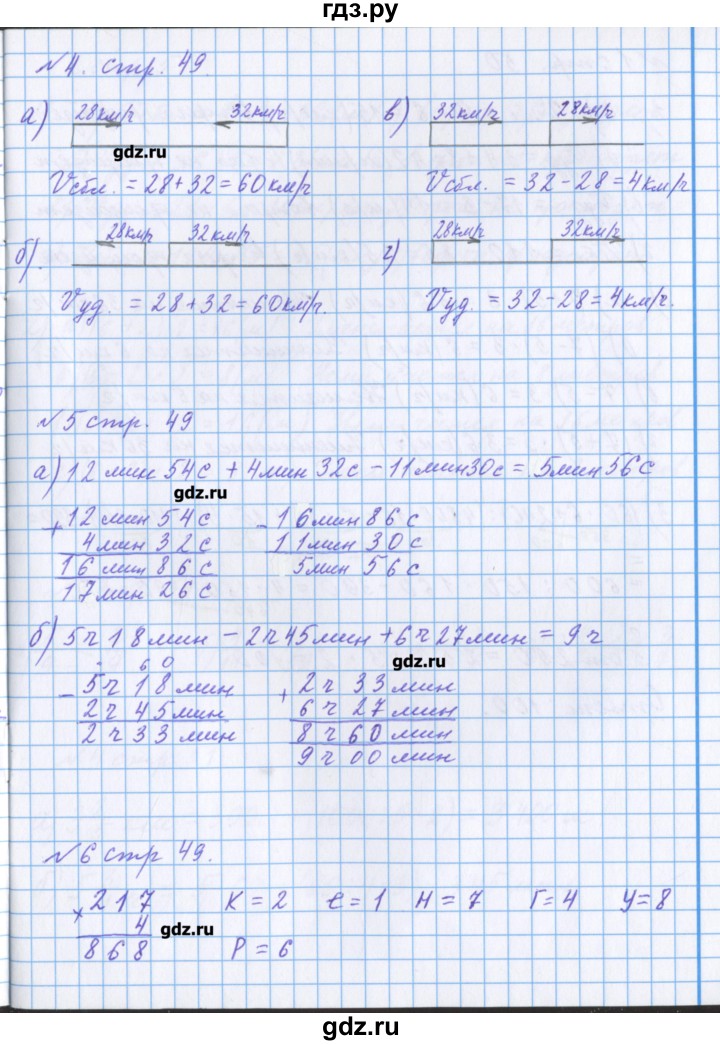 гдз.ру
№4. стр. 49.
а) 28км/ч 32км/ч
в) 32км/ч 28км/ч
gdz.ru
Vсбл. = 28+32=60км/ч
Vсбл. = 32-28=4км/ч
б). 28км/ч 32км/ч
г) 28км/ч 32км/ч
Vуд. = 28+32=60км/ч.
Vуд. = 32-28=4км/ч.
№5 стр. 49
а) 12 мин 54с + 4мин 32с - 11мин30с = 5мин 56с
gdz.ru
+ 12 мин 54с
4мин 32с
16 мин 86с
17 мин 26с
- 16мин 86с
11мин 30с
5мин 56с
б) 5ч18мин - 2ч45мин + 6ч27мин = 9ч
gdz.ru
60
- 5ч 18мин
2ч 45мин
2ч 33мин
+ 2ч 33мин
6ч 27мин
8ч 60мин
9ч 00мин
№6 стр 49.
× 217
4
868
gdz.ru
К=2 Е=1 Н=7 Г=4 У=8
Р=6
gdz.ru